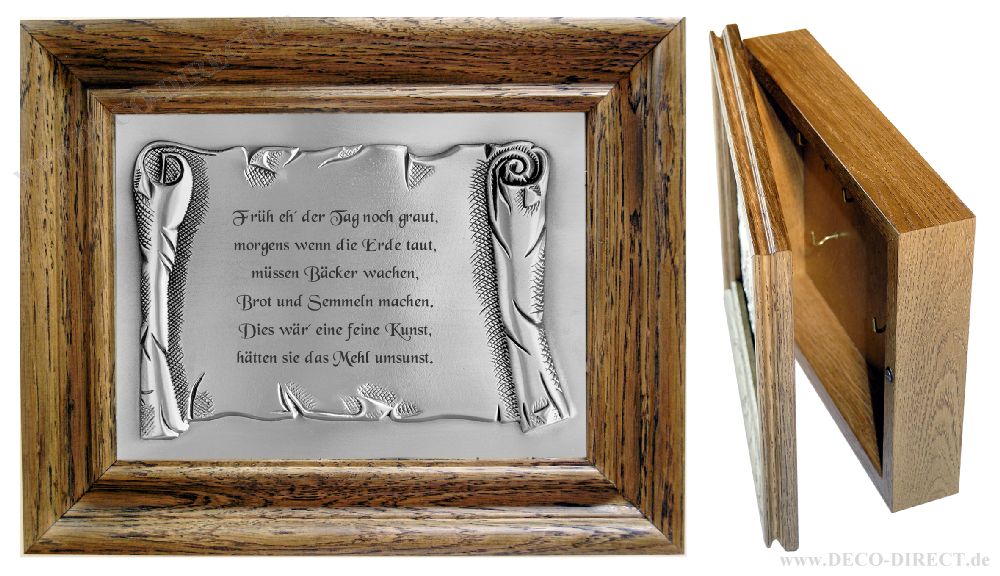 Früh eh' der Tag noch graut,
morgens wenn die Erde taut,
müssen Bäcker wachen,
Brot und Semmeln machen.
Dies wär' eine feine Kunst,
hätten sie das Mehl umsunst.
www.DECO-DIRECT.de